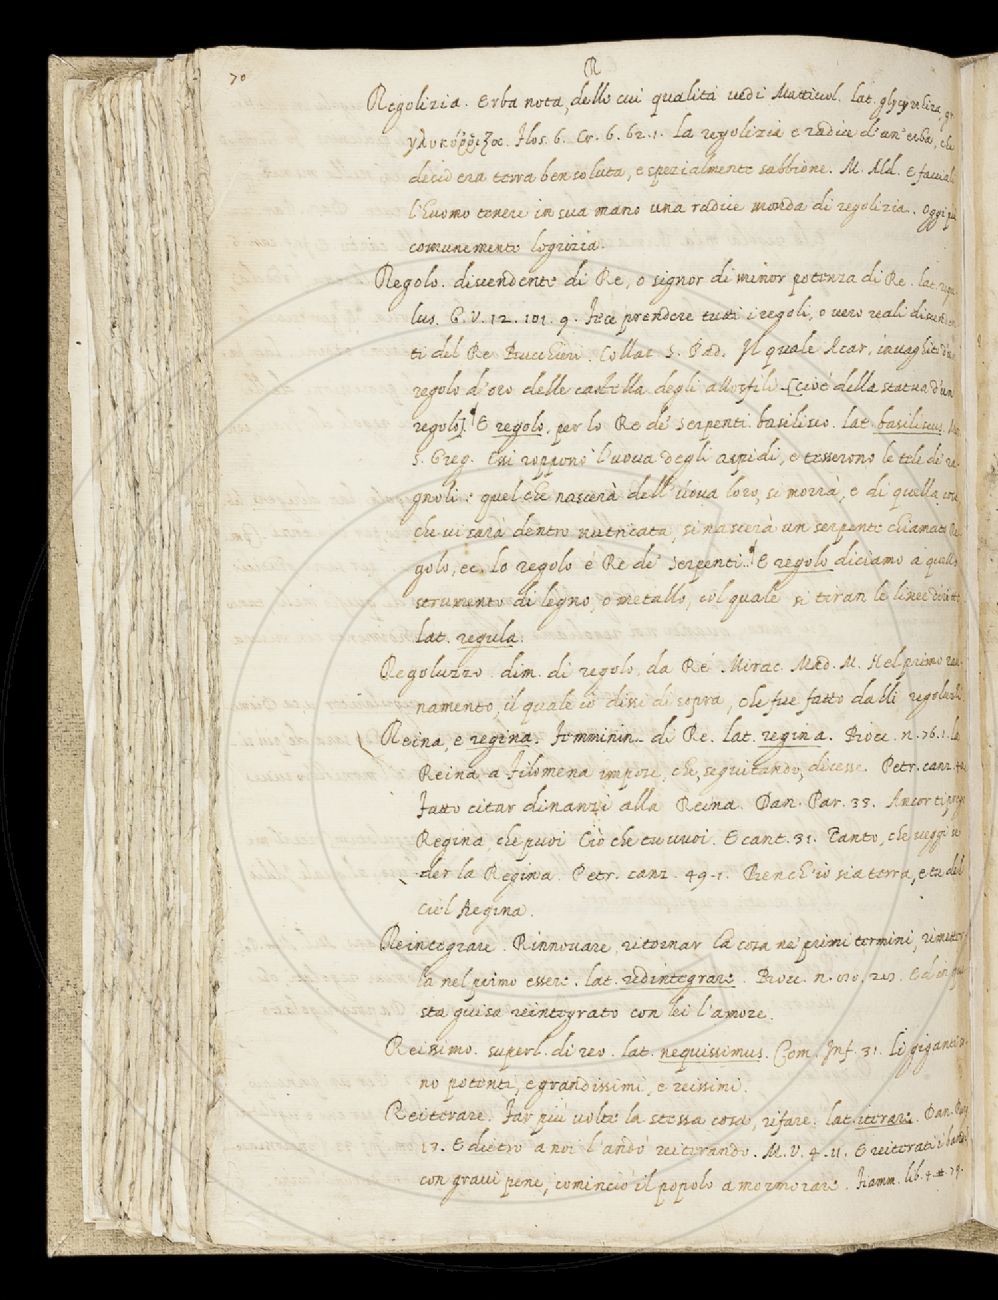 70
R
Regolizia. Erba nota, delle cui qualità vedi Mattiuol. Lat. glycyrrhiza, gr.
γλυκόῤῥιζα. Flos. 6. Cr. 6. 62. 1. La regolizia è radice d'un'erba, che
desidera terra ben soluta, e spezialmente sabbione. M. Ald. E faccia
l'huomo tenere in sua mano una radice monda di regolizia. Oggi più
comunemente logrizia.
Regolo. discendente di Re, o signor di minor potenza di Re. lat. regu-
lus. G. V. 12. 101. 9. Fece prendere tutti i regoli, o vero reali discenden
ti del Re Bucchieri. Collat. S. Pad. Il quale Acar, invaghito d'un
regolo d'oro delle castella degli allosfili [cioè della statua d'un
regolo]. E regolo, per lo Re de' serpenti basilisco. Lat. basiliscus.
S. Greg. Essi roppono l'uova degli aspidi, e tesserono le tele de' ra-
gnoli: quel che nascerà dell'uova loro, si morrà, e di quella
che vi sarà dentro nutricata, si nascerà un serpente chiamato Re-
golo, ec. lo regolo è Re de' serpenti. E regolo diciamo a quello
strumento di legno, o metallo, col quale si tiran le linee diritte
Lat. regula.
Regoluzzo. dim. di regolo, da Re. Mirac. Mad. M. Nel primo
namento, il quale io dissi di sopra, che fue fatto dalli regoluzzi
Reina, e regina. Femminin. di Re. Lat. regina. Bocc. n. 16. 1. La
Reina a Filomena impose, che, seguitando, dicesse. Petr. canz.
Fatto citar dinanzi alla Reina. Dan. Par. 33. Ancor ti prego
Regina, che puoi Ciò che tu vuoi. E cant. 31. Tanto, che veggi se
der la Regina. Petr. canz. 49. 1. Bench'io sia terra, e tu del
ciel Regina.
Reintegrare. Rinnovare, ritornar la cosa ne' primi termini, rimetter
la nel primo essere. Lat. redintegrare. Bocc. n. E in que
sta guisa reintegrato con lei l'amore.
Reissimo. superl. di reo. lat. nequissimus. Com. Inf. 31. Li giganti
no potenti, e grandissimi, e reissimi.
Reiterare. Far più volte la stessa cosa, rifare. lat. iterare. Dan.
17. E dietro a noi l'andò reiterando. M. V. 4. 11. E reiterati i bandi
con gravi pene, cominciò il popolo a mormorare. Fiamm. lib. 4.